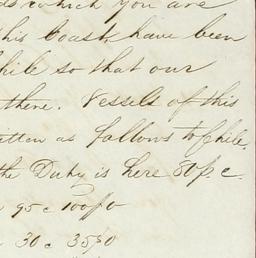 which you are
this Coast have been
Chile so that our
there. Vessels of this
as follows to Chile.
the Duty is here 80 p c
95 c 100 p 0
30 c 35 p 0